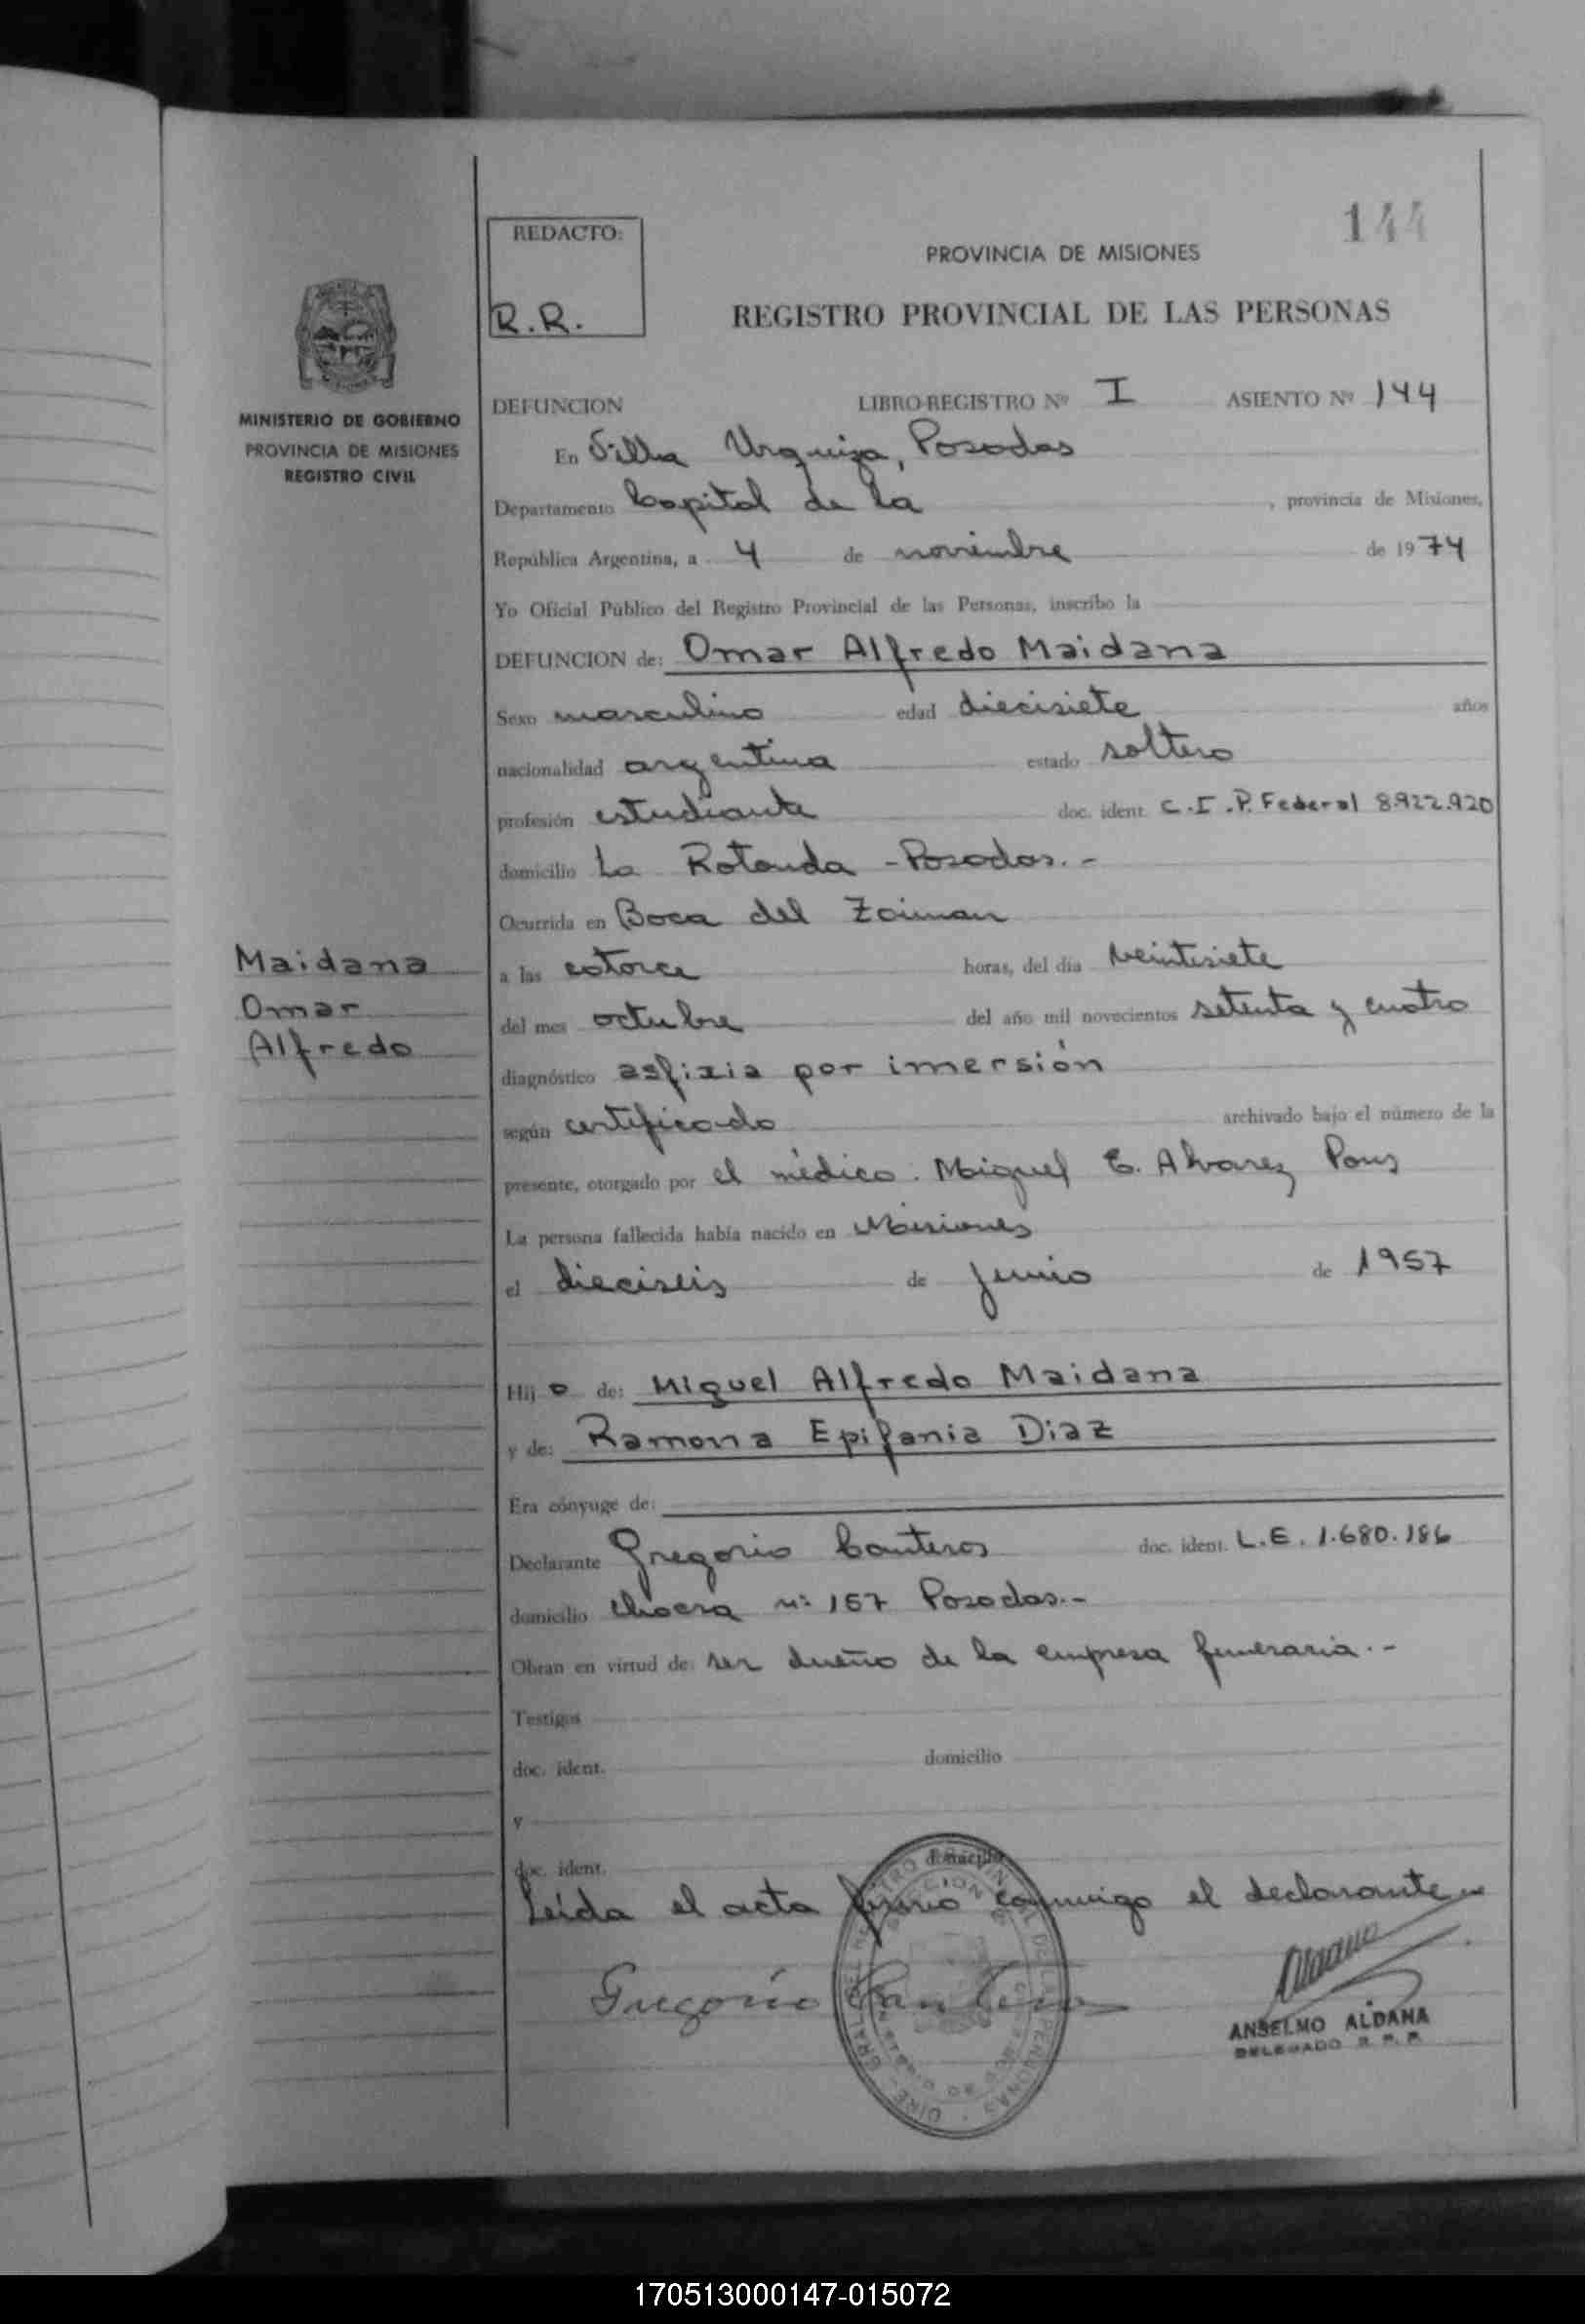 144
REDACTO:
R.R.
PROVINCIA DE MISIONES
REGISTRO PROVINCIAL DE LAS PERSONAS
MINISTERIO DE GOBIERNO
PROVINCIA DE MISIONES
REGISTRO CIVIL
DEFUNCION LIBRO-REGISTRO Nº I ASIENTO Nº 144
En Villa Urquiza, Posadas
Departamento Capital de la , provincia de Misiones,
República Argentina, a 4 de noviembre de 1974
Yo Oficial Público del Registro Provincial de las Personas, inscribo la
DEFUNCION de: Omar Alfredo Maidana
Sexo masculino edad diecisiete años
nacionalidad argentina estado soltero
profesión estudiante doc. ident. C.I.P. Federal 8.922.920
domicilio La Rotonda - Posadas.-
Ocurrida en Boca del Zaiman
Maidana
Omar
Alfredo
a las catorce horas, del día veintisiete
del mes octubre del año mil novecientos setenta y cuatro
diagnóstico asfixia por imersión
según certificado archivado bajo el número de la
presente, otorgado por el médico: Miguel E. Alvarez Pons
La persona fallecida había nacido en Misiones
el dieciseis de junio de 1957
Hijo de: Miguel Alfredo Maidana
y de: Ramona Epifania Diaz
Era cónyuge de:
Declarante Gregorio Canteros doc. ident. L.E. 1.680.186
domicilio chacra nº 157 Posadas.-
Obran en virtud de: ser dueño de la empresa funeraria.-
Testigos
doc. ident. domicilio
y
doc. ident. domicilio
Leída el acta firma conmigo el declarante
Gregorio Cantero
ANSELMO ALDANA
DELEGADO R. P. P.
170513000147-015072